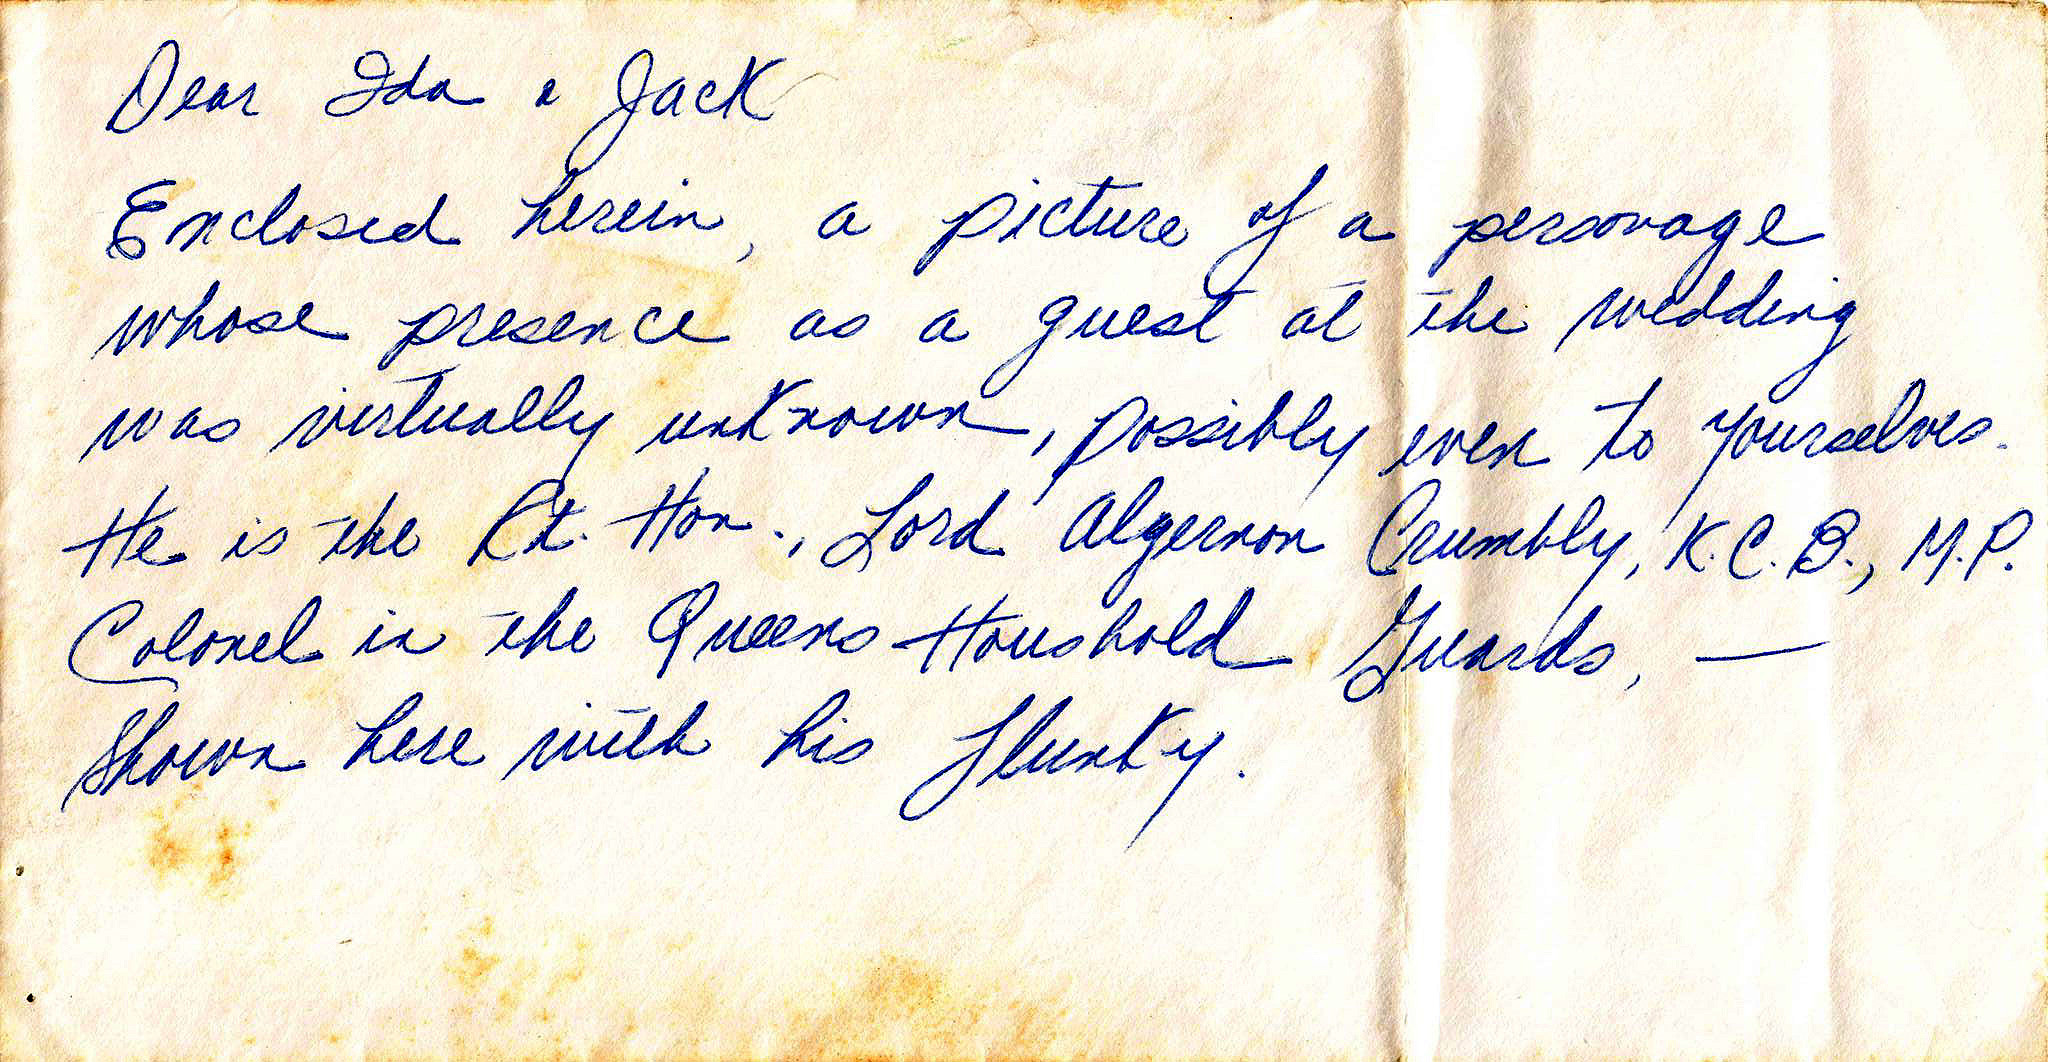 Dear Ida & Jack
Enclosed herein, a picture of a personage
whose presence as a guest at the wedding
was virtually unknown, possibly even to yourselves.
He is the Rt. Hon., Lord Algernon Crumbly, K.C.B., M.P.
Colonel in the Queens Houshold Guards, —
Shown here with his flunky.